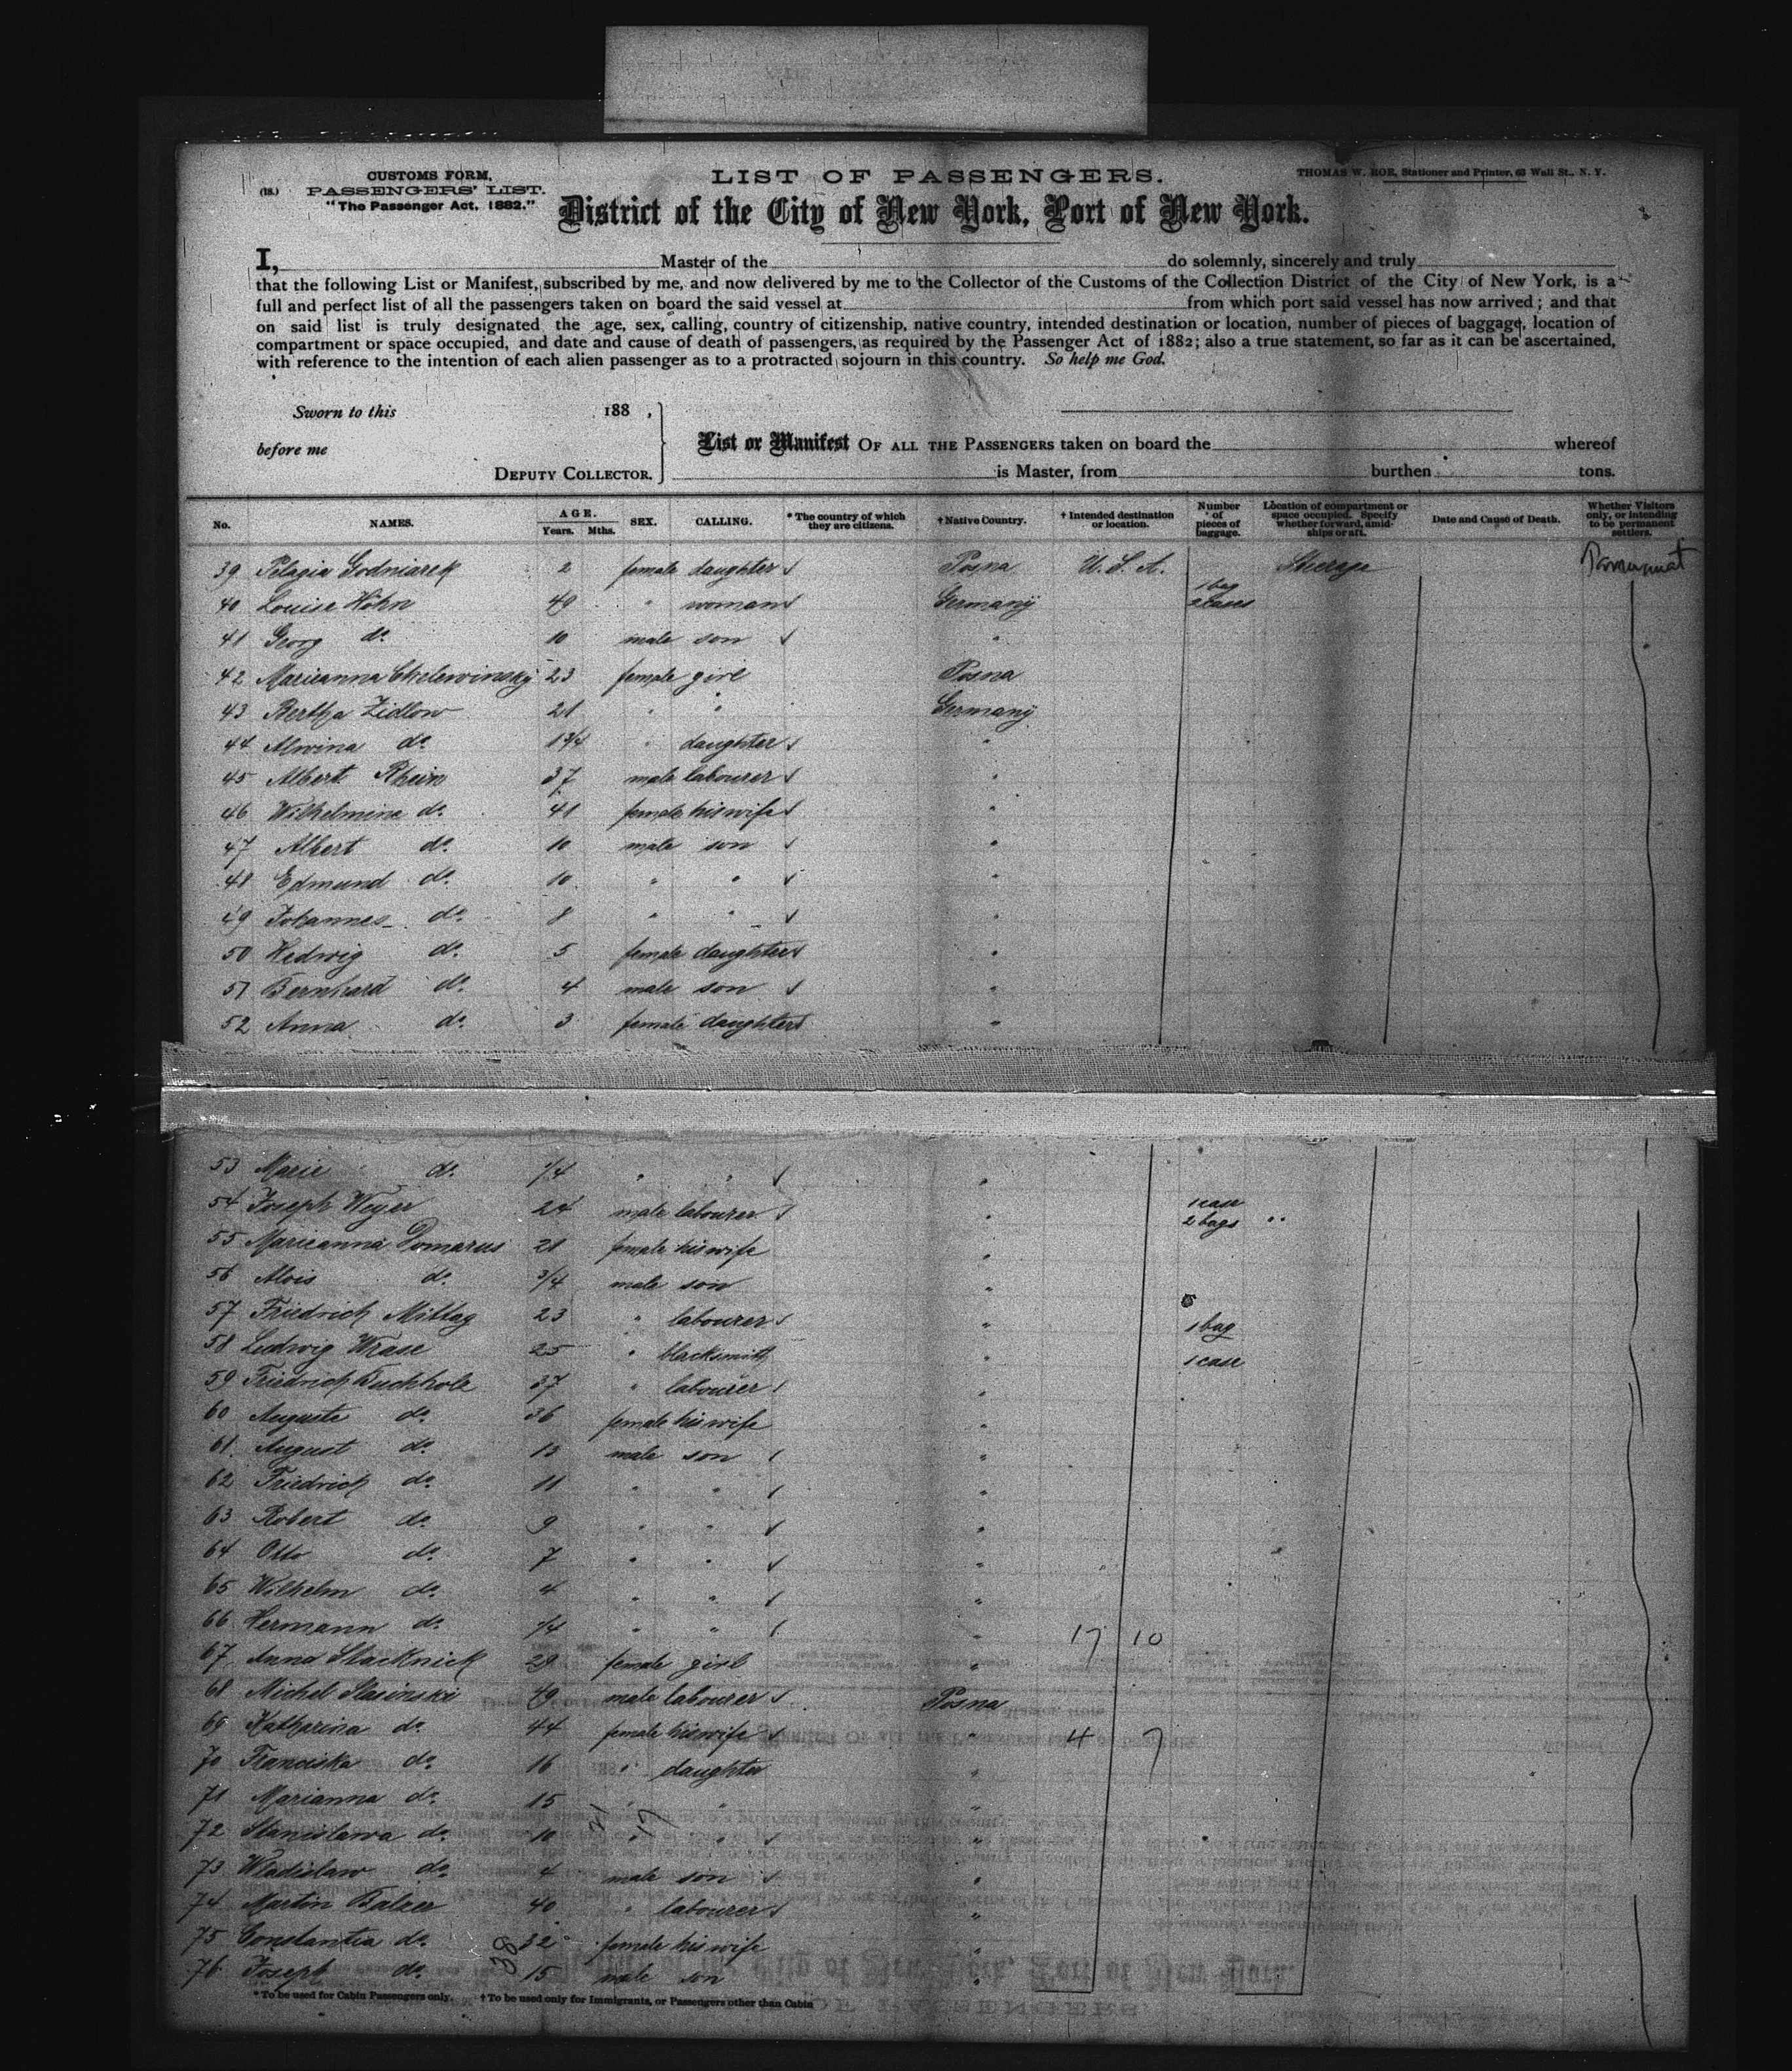 CUSTOMS FORM,
(18.) PASSENGERS' LIST.
"The Passenger Act, 1882."
LIST OF PASSENGERS.
THOMAS W. ROE, Stationer and Printer, 63 Wall St., N. Y.
District of the City of New York, Port of New York.
I, Master of the do solemnly, sincerely and truly
that the following List or Manifest, subscribed by me, and now delivered by me to the Collector of the Customs of the Collection District of the City of New York, is a
full and perfect list of all the passengers taken on board the said vessel at from which port said vessel has now arrived; and that
on said list is truly designated the age, sex, calling, country of citizenship, native country, intended destination or location, number of pieces of baggage, location of
compartment or space occupied, and date and cause of death of passengers, as required by the Passenger Act of 1882; also a true statement, so far as it can be ascertained,
with reference to the intention of each alien passenger as to a protracted sojourn in this country. So help me God.
Sworn to this 188 ,
before me
DEPUTY COLLECTOR.
List or Manifest OF ALL THE PASSENGERS taken on board the whereof
is Master, from burthen tons.
No. NAMES. AGE. Years. Mths. SEX. CALLING. * The country of which they are citizens. † Native Country. † Intended destination or location. Number of pieces of baggage. Location of compartment or space occupied. Specify whether forward, amidships or aft. Date and Cause of Death. Whether Visitors only, or intending to be permanent settlers.
39 Pelagia Godniarek 2 female daughter Posna U. S. A. Steerage Permanent
40 Louise Höhn 49 " woman Germany 1 bag 2 cases
41 Georg do. 10 male son "
42 Marieanna Chelewinsky 23 female girl Posna
43 Bertha Zidlow 21 " " Germany
44 Alwina do. 1 3/4 " daughter "
45 Albert Rhein 37 male labourer "
46 Wilhelmina do. 41 female his wife "
47 Albert do. 10 male son "
48 Edmund do. 10 " " "
49 Johannes do. 8 " " "
50 Hedwig do. 5 female daughter "
51 Bernhard do. 4 male son "
52 Anna do. 3 female daughter "
53 Marie do. 1/4 " " "
54 Joseph Weyer 24 male labourer " 1 case 2 bags "
55 Marieanna Domarus 21 female his wife "
56 Alois do. 3/4 male son "
57 Friedrich Mittag 23 " labourer " 1 bag
58 Ludwig Wrase 25 " blacksmith " 1 case
59 Friedrich Buchholz 37 " labourer "
60 Auguste do. 36 female his wife "
61 August do. 13 male son "
62 Friedrich do. 11 " " "
63 Robert do. 9 " " "
64 Otto do. 7 " " "
65 Wilhelm do. 4 " " "
66 Hermann do. 1/4 " " " 17 10
67 Anna Stacknick 29 female girl "
68 Michel Stasinski 49 male labourer Posna
69 Katharina do. 44 female his wife " 4 7
70 Franciska do. 16 " daughter "
71 Marianna do. 15 " " "
72 Stanislawa do. 10 " " "
73 Wladislaw do. 4 male son "
74 Martin Balzer 40 " labourer "
75 Constantia do. 32 female his wife "
76 Joseph do. 15 male son "
38
21 17
* To be used for Cabin Passengers only. † To be used only for Immigrants, or Passengers other than Cabin